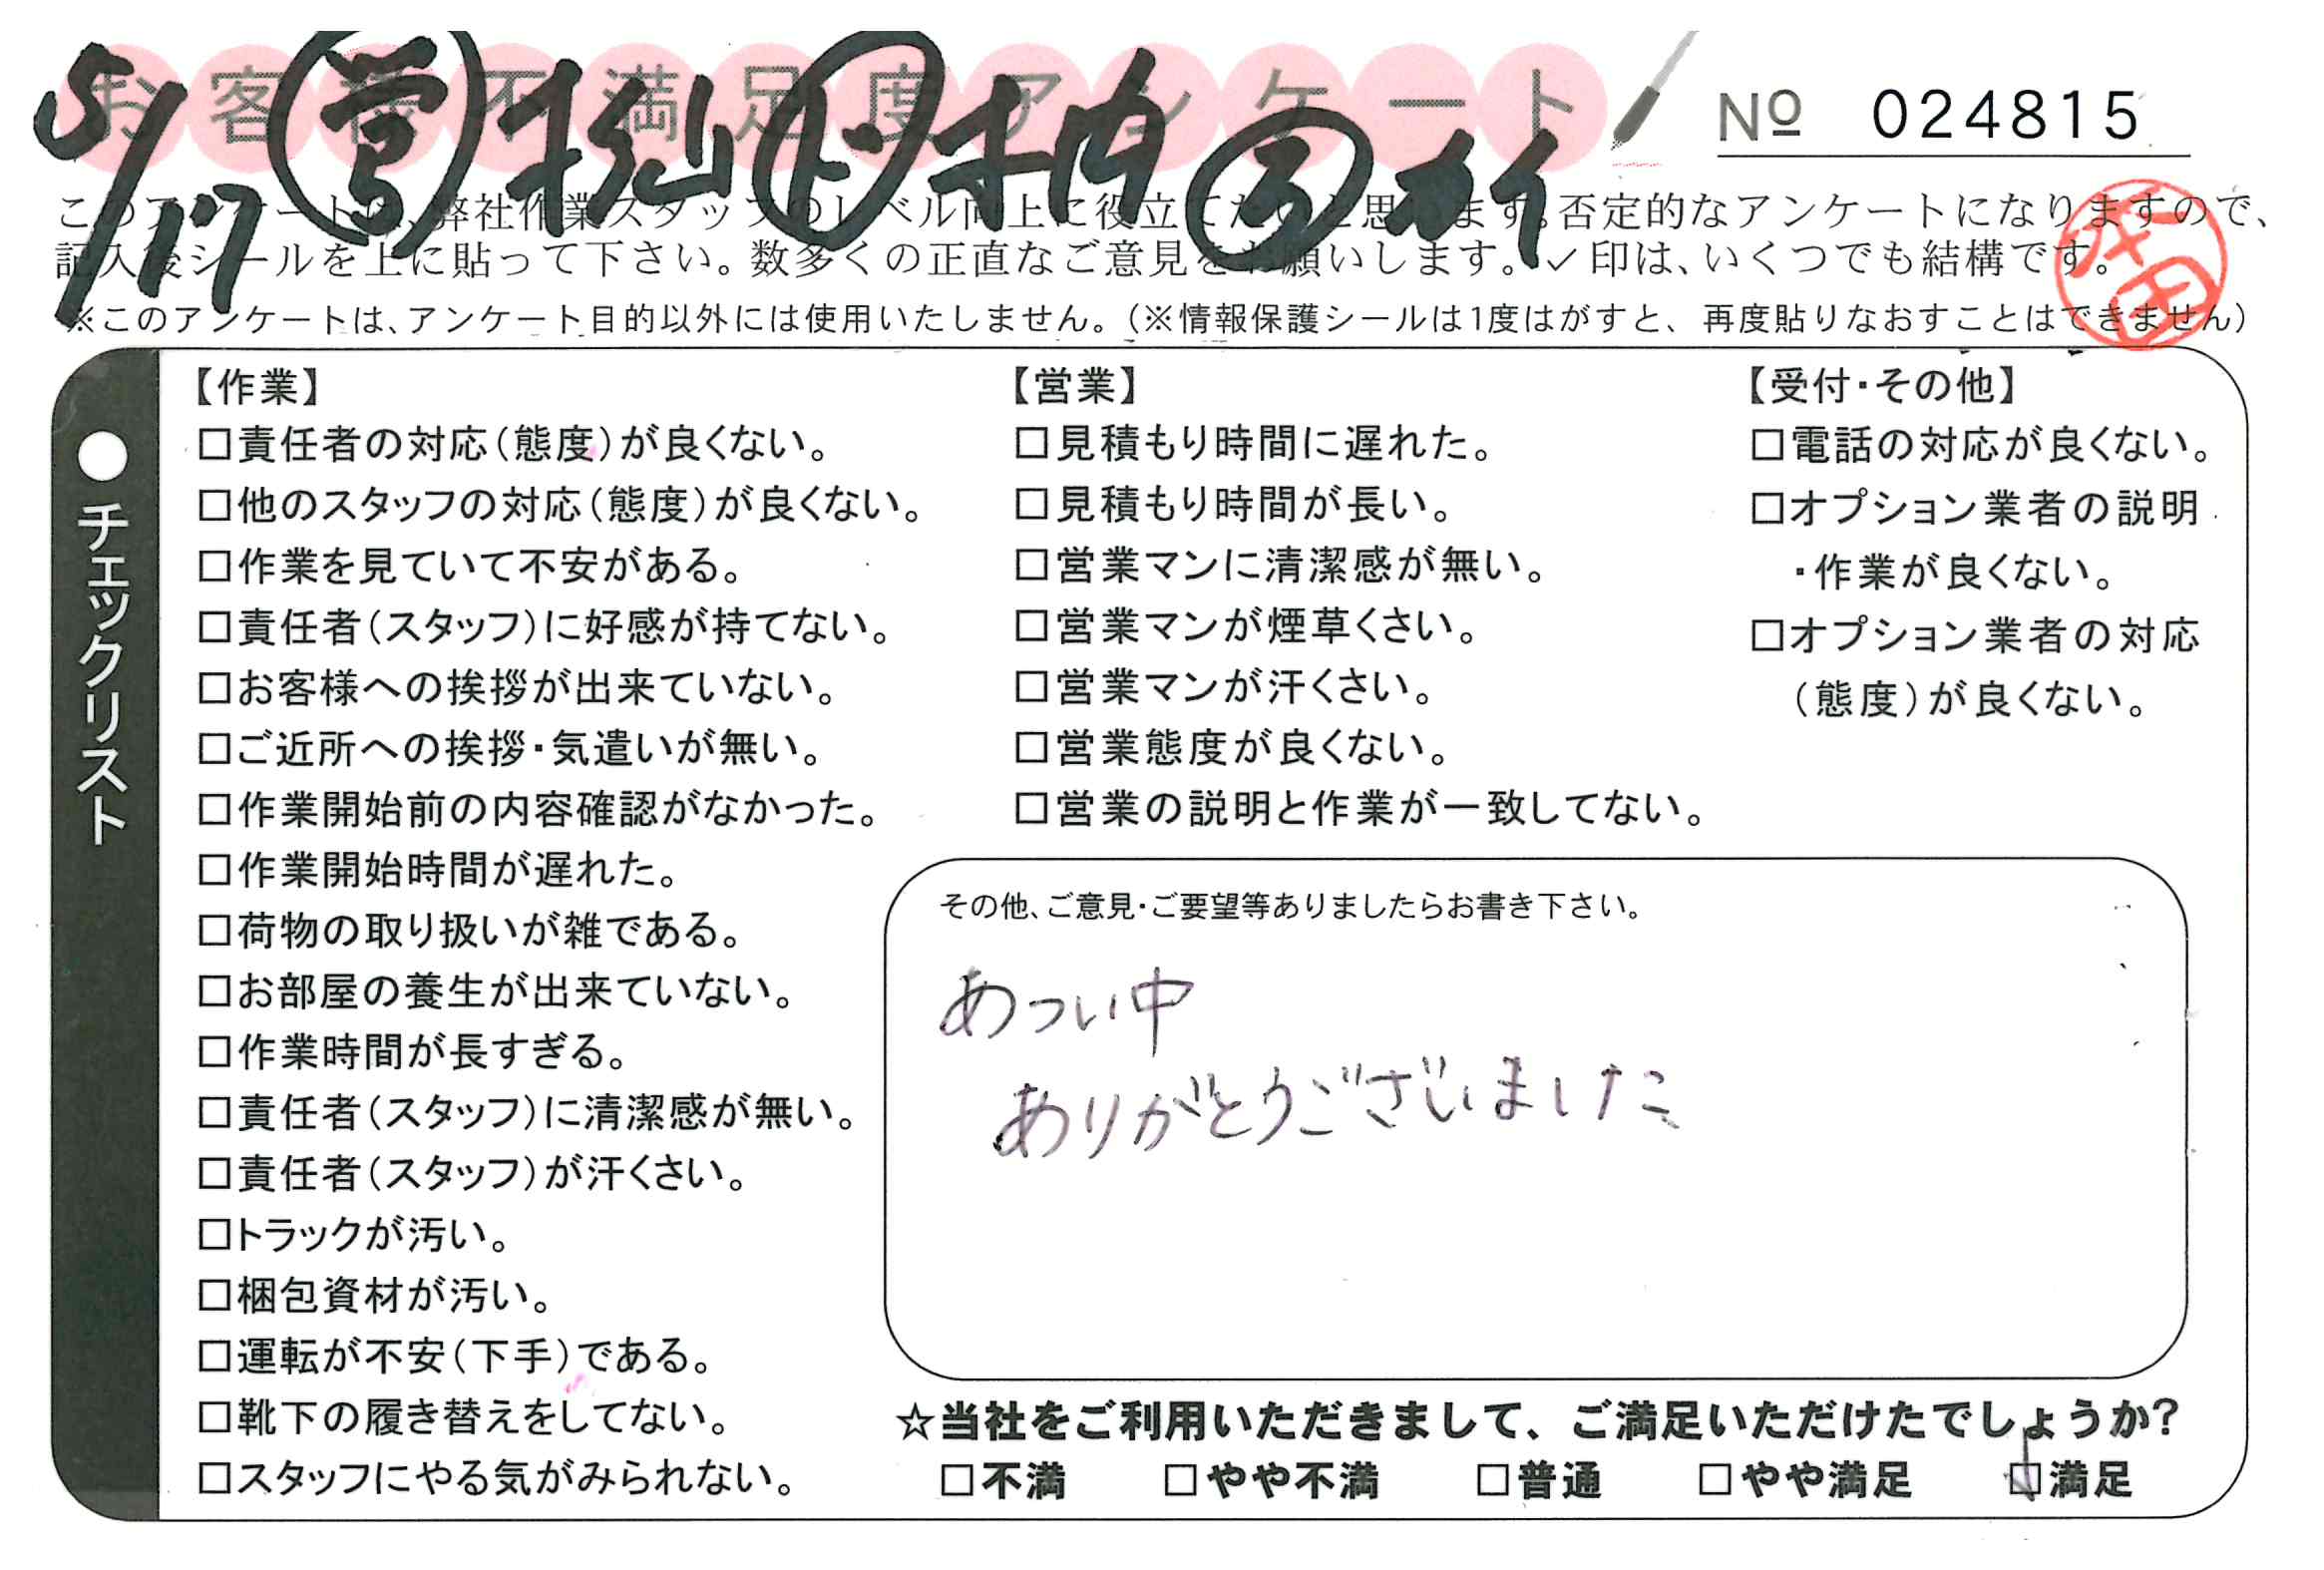 お客様不満足度アンケート
№ 024815
5/17 営 杉山 ト 木内
このアンケートは、弊社作業スタッフのレベル向上に役立てたいと思います。否定的なアンケートになりますので、
記入後シールを上に貼って下さい。数多くの正直なご意見をお願いします。✓印は、いくつでも結構です。
※このアンケートは、アンケート目的以外には使用いたしません。（※情報保護シールは1度はがすと、再度貼りなおすことはできません）
本田
●チェックリスト
【作業】
□責任者の対応（態度）が良くない。
□他のスタッフの対応（態度）が良くない。
□作業を見ていて不安がある。
□責任者（スタッフ）に好感が持てない。
□お客様への挨拶が出来ていない。
□ご近所への挨拶・気遣いが無い。
□作業開始前の内容確認がなかった。
□作業開始時間が遅れた。
□荷物の取り扱いが雑である。
□お部屋の養生が出来ていない。
□作業時間が長すぎる。
□責任者（スタッフ）に清潔感が無い。
□責任者（スタッフ）が汗くさい。
□トラックが汚い。
□梱包資材が汚い。
□運転が不安（下手）である。
□靴下の履き替えをしてない。
□スタッフにやる気がみられない。
【営業】
□見積もり時間に遅れた。
□見積もり時間が長い。
□営業マンに清潔感が無い。
□営業マンが煙草くさい。
□営業マンが汗くさい。
□営業態度が良くない。
□営業の説明と作業が一致してない。
【受付・その他】
□電話の対応が良くない。
□オプション業者の説明
・作業が良くない。
□オプション業者の対応
（態度）が良くない。
その他、ご意見・ご要望等ありましたらお書き下さい。
あつい中
ありがとうございました
☆当社をご利用いただきまして、ご満足いただけたでしょうか？
□不満 □やや不満 □普通 □やや満足 ☑満足